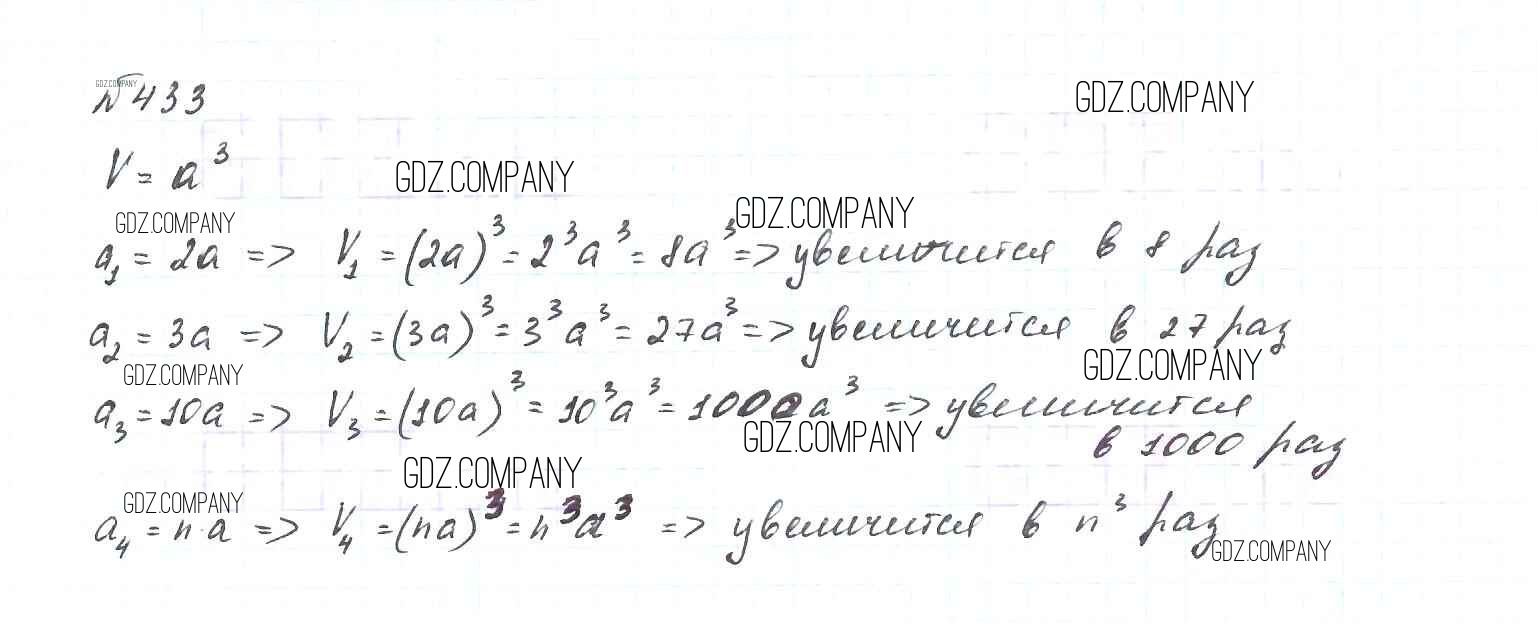 GDZ.COMPANY
№433
GDZ.COMPANY
V = a³
GDZ.COMPANY
GDZ.COMPANY
GDZ.COMPANY
a₁ = 2a => V₁ = (2a)³ = 2³a³ = 8a³ => увеличится в 8 раз
a₂ = 3a => V₂ = (3a)³ = 3³a³ = 27a³ => увеличится в 27 раз
GDZ.COMPANY
GDZ.COMPANY
a₃ = 10a => V₃ = (10a)³ = 10³a³ = 1000a³ => увеличится
GDZ.COMPANY
в 1000 раз
GDZ.COMPANY
GDZ.COMPANY
a₄ = n·a => V₄ = (na)³ = n³a³ => увеличится в n³ раз
GDZ.COMPANY